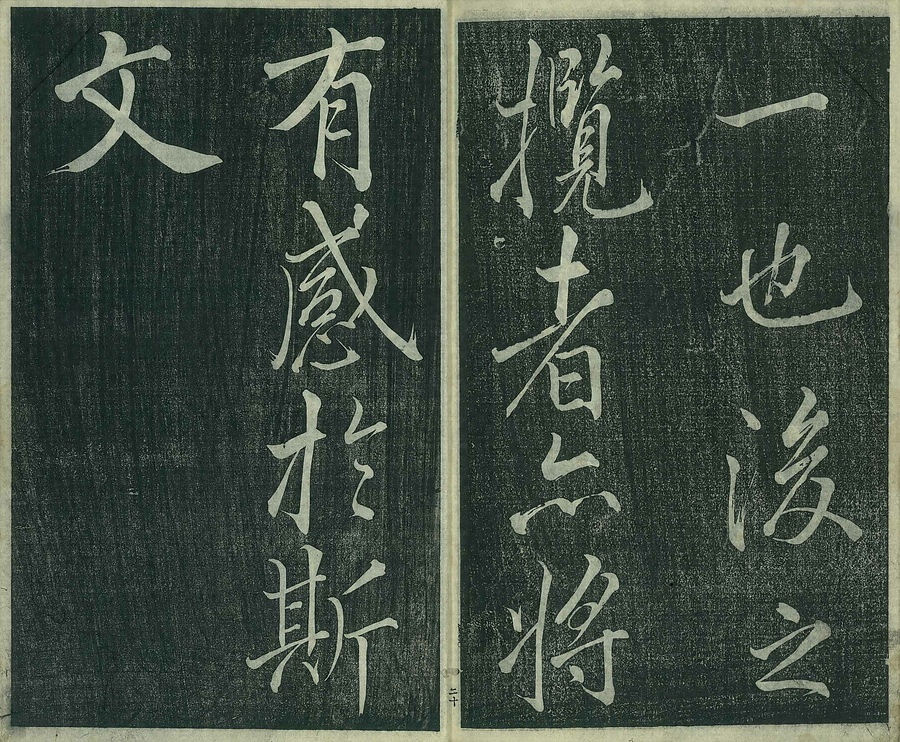 一也後之
攬者亦將
有感於斯
文
二十